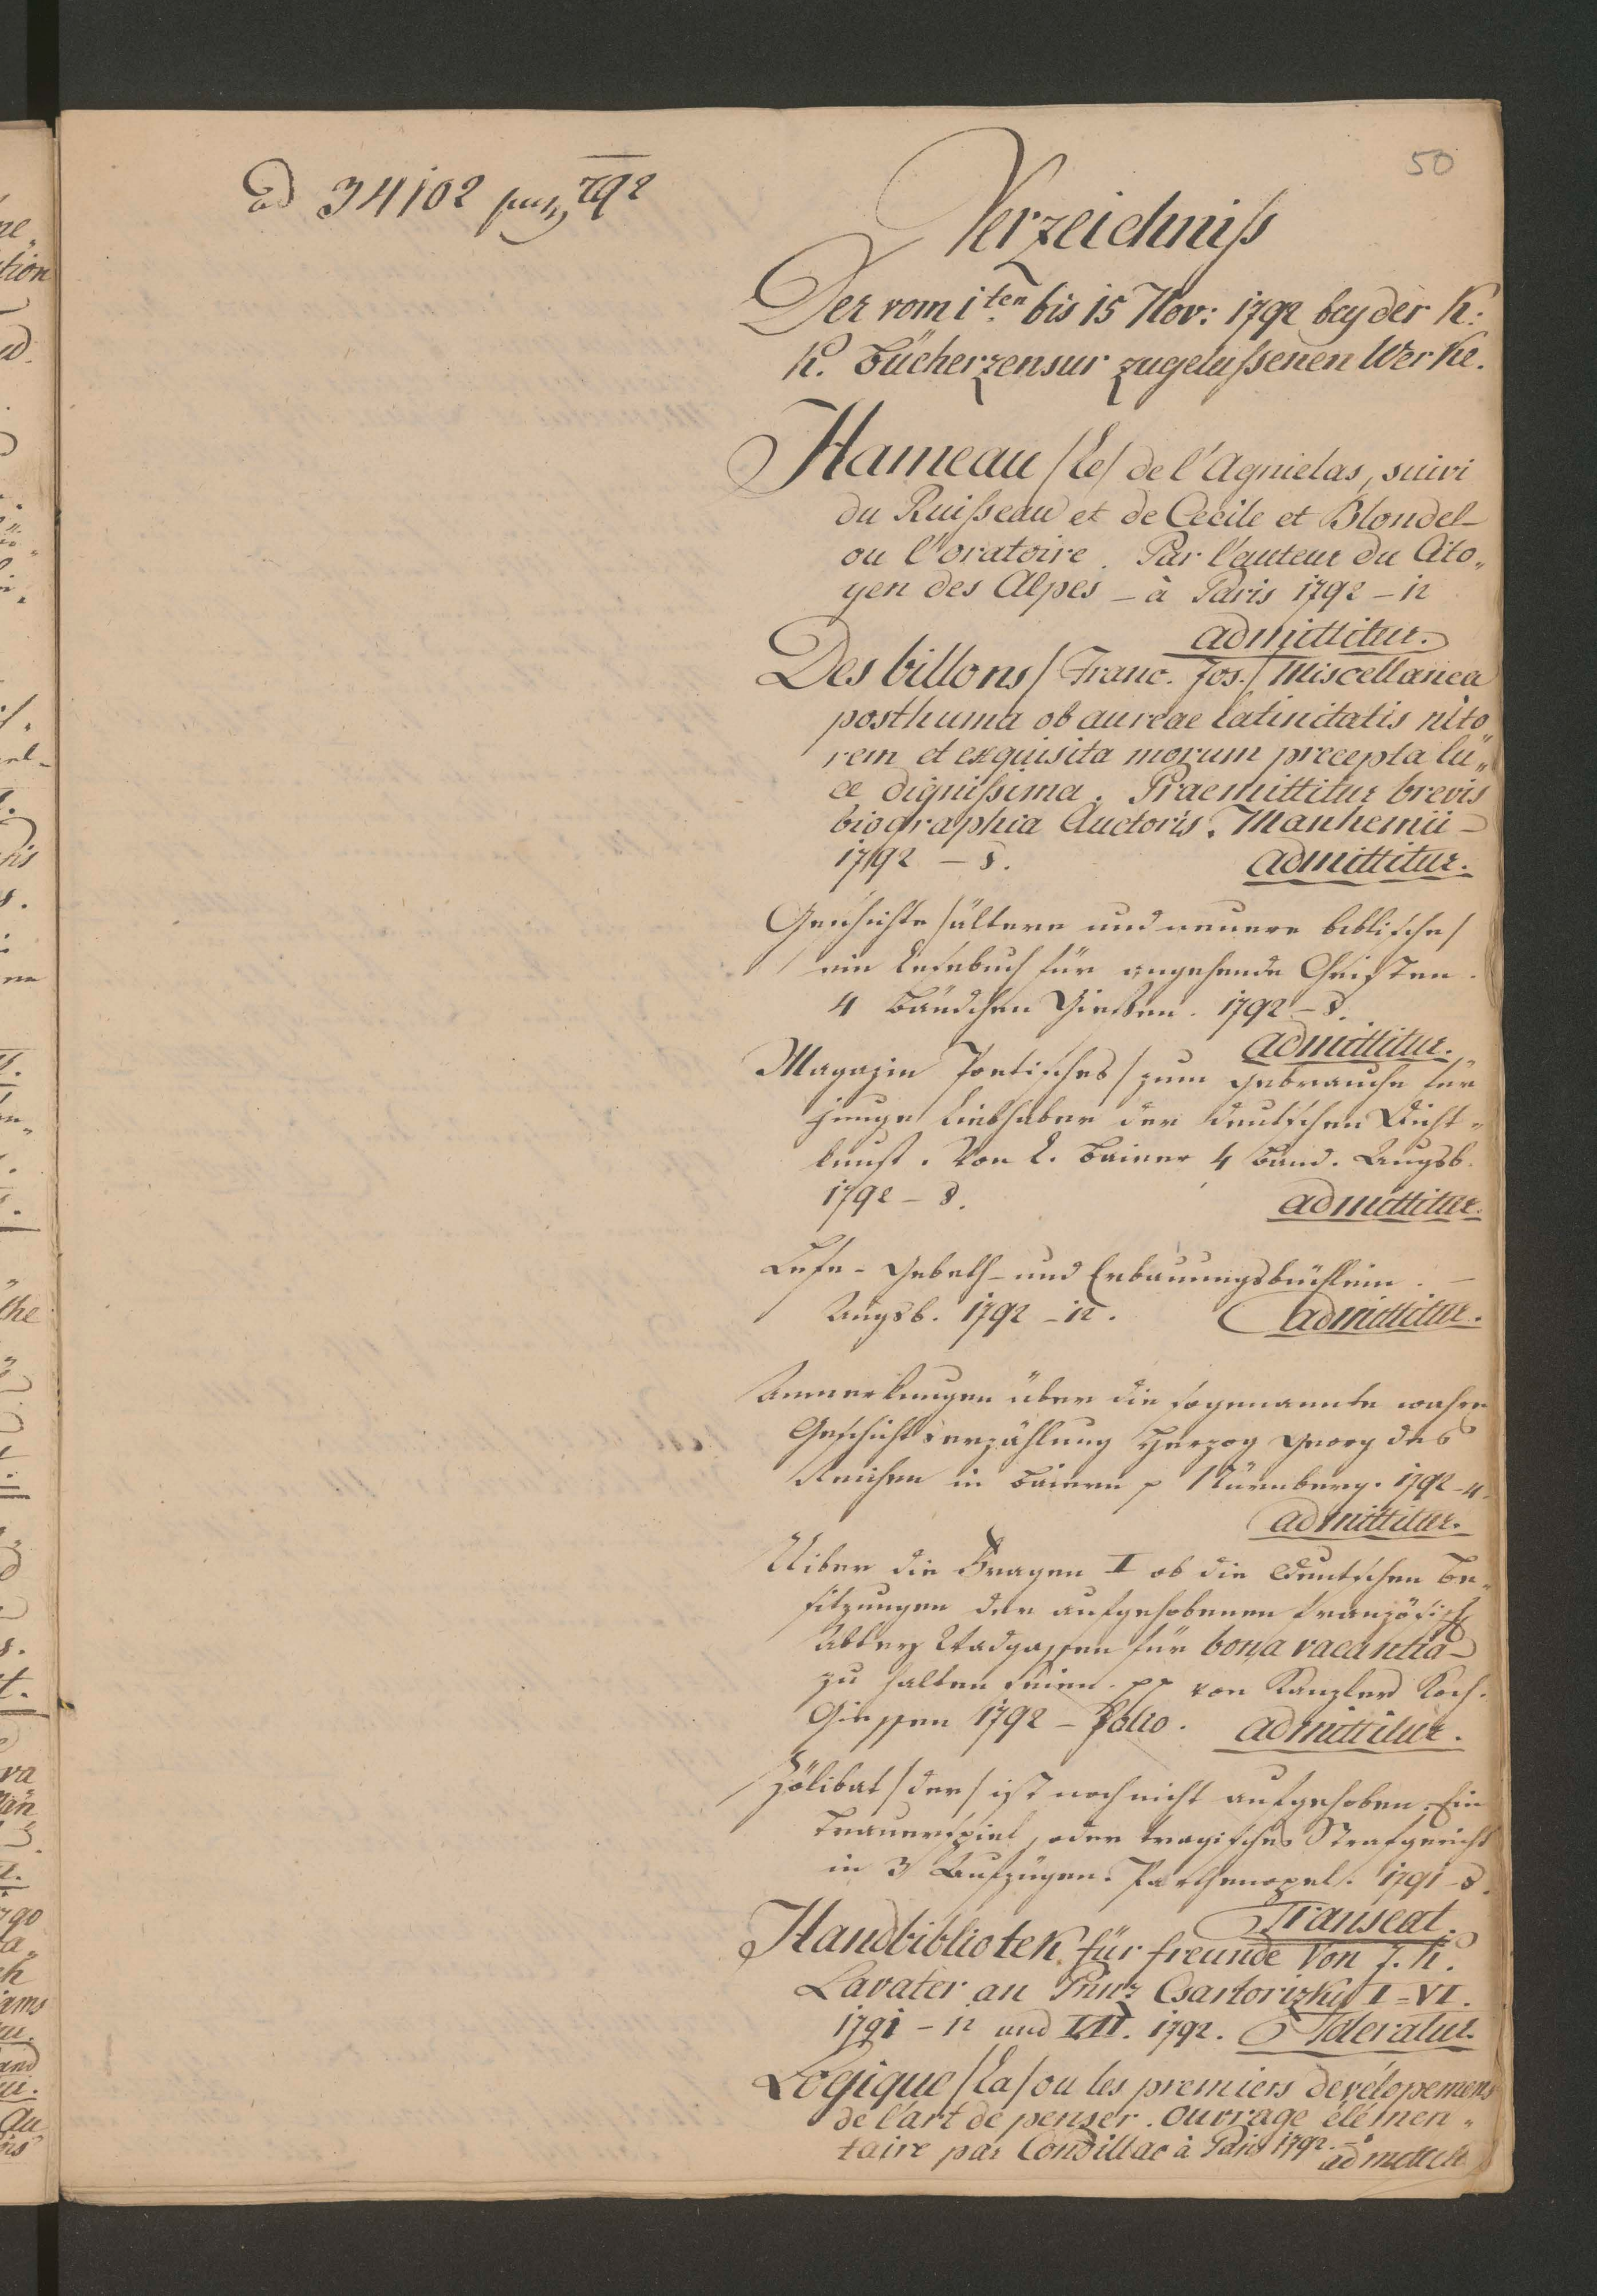 50
Ad 34102 792
Verzeichniß
Der vom 1ten bis 15 Nov: 1792 bey der K:
K. Bücherzensur zugelaßenen Werke.
Hameau /le/ de l'Agnielas, suivi
du Ruißeau et de Cecile et Blondel
ou l'oratoire. Par l'auteur du Cito„
yen des Alpes – à Paris 1792 – 12
admittitur.
Des billons / Franc. Jos./ Miscellanea
posthuma ob aureae latinitatis nito
rem et exquisita morum precepta lu„
ce dignißima. Praemittitur brevis
biographia Auctoris. Manhemii –
1792 – 8. admittitur.
Geschichte /ältere und neuere biblische/
ein Lesebuch für angehende Christen.
4 Bändchen Gießen. 1792 – 8.
admittitur.
Magazin Poetisches / zum Gebrauche für
junge Liebhaber der deutschen Dicht„
kunst. Von L. Bainer 4 Band. Augsb.
1792 – 8. admittitur.
Lese- Gebeth- und Erbauungsbüchlein. –
Augsb. 1792 – 12. admittitur.
Anmerkungen über die sogenannte wahre
Geschichtserzählung Herzog Georg des
Reichen in Baiern p Nürnberg. 1792 – 4
admittitur.
Uiber die Fragen I ob die Deutschen Be„
sitzungen der aufgehobenen französisch
Abtey Wadgassen für bona vacantia
zu halten seien. pp von Kanzler Koch.
Giessen 1792 – Folio. admittitur.
Zölibat /der/ ist noch nicht aufgehoben. Ein
Trauerspiel, oder tragisches Strafgericht
in 3 Aufzügen. Parthenopel. 1791 – 8.
Transeat.
Handbibliotek für freunde Von J. K.
Lavater an Prinz Csartorizky I – VI.
1791 – 12 und I.II. 1792. Toleratur.
Logique /la/ ou les premiers dévélopemens
de l'art de penser. ouvrage élémen„
taire par Condillac à Paris 1792. – 8
admittitur